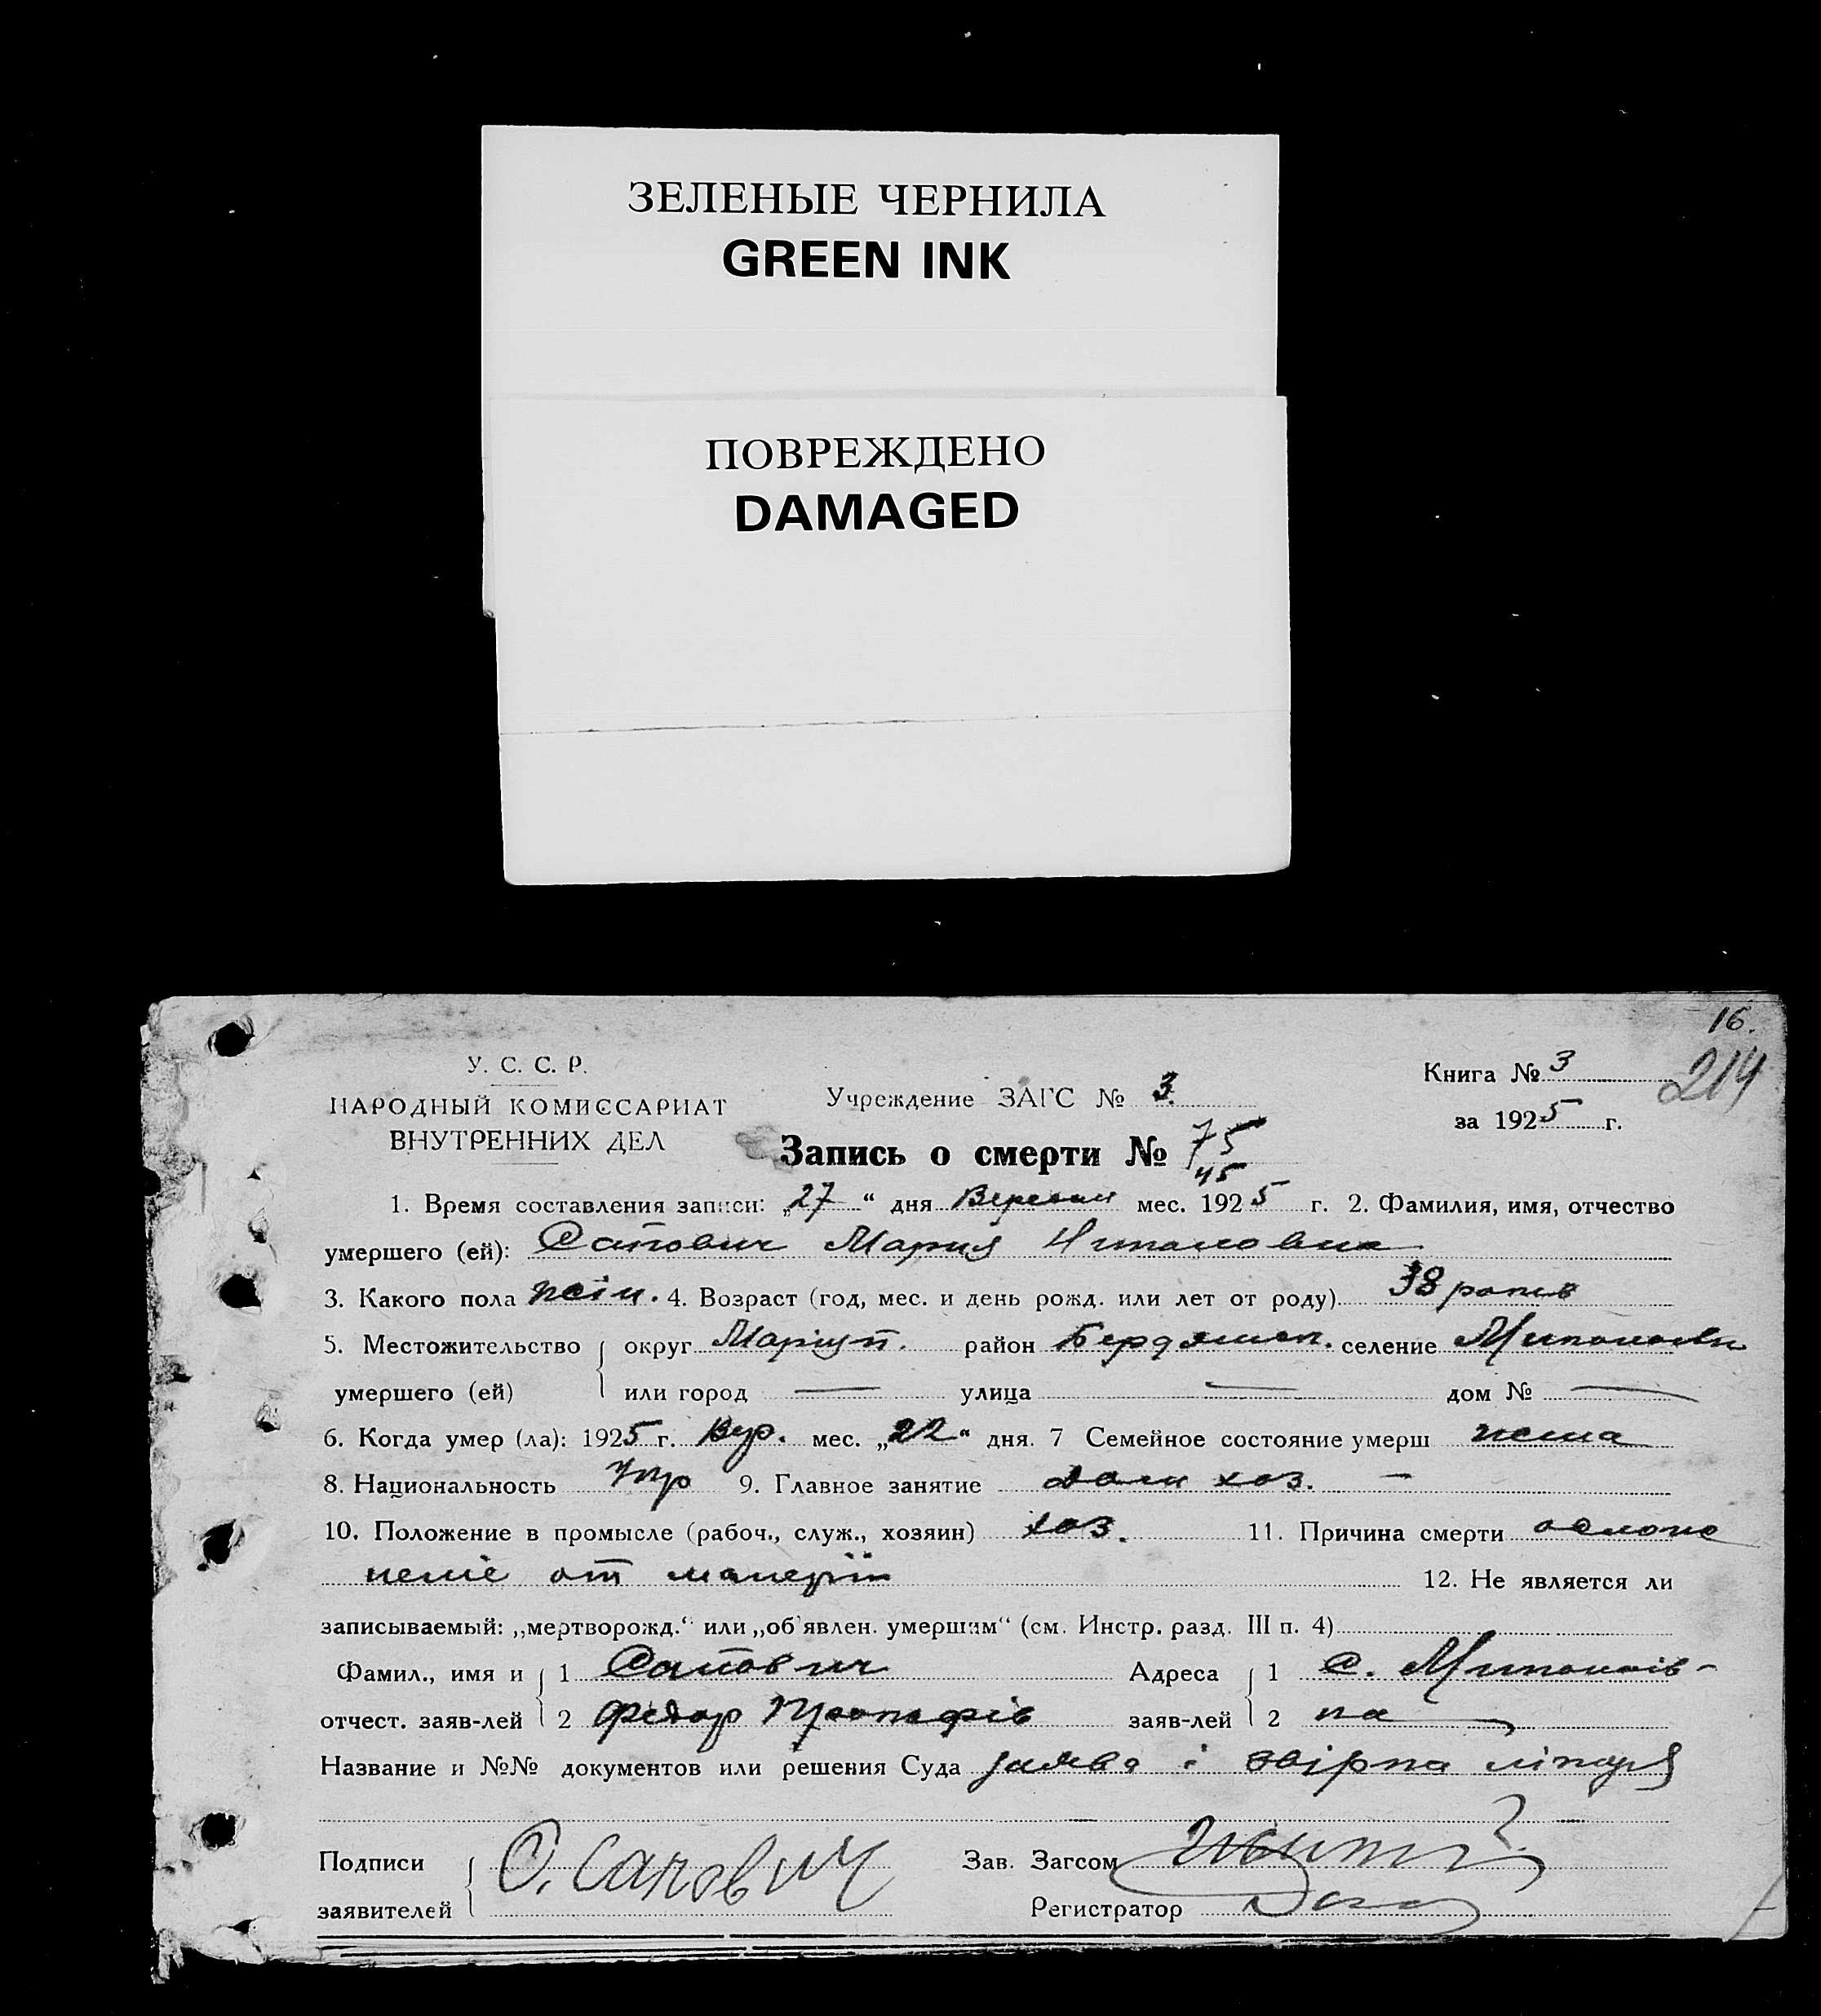 ЗЕЛЕНЫЕ ЧЕРНИЛА
GREEN INK
ПОВРЕЖДЕНО
DAMAGED
16.
214
У. С. С. Р.
НАРОДНЫЙ КОМИССАРИАТ
ВНУТРЕННИХ ДЕЛ
Учреждение ЗАГС № 3
Книга № 3
за 1925 г.
Запись о смерти № 75
45
1. Время составления записи: „27“ дня Вересня мес. 1925 г. 2. Фамилия, имя, отчество
умершего (ей): Сапович Мария
3. Какого пола жін. 4. Возраст (год, мес. и день рожд. или лет от роду) 38 роков
5. Местожительство округ Маріуп. район Бердянск. селение
умершего (ей) или город — улица — дом № —
6. Когда умер (ла): 1925 г. Вер. мес. „22“ дня. 7 Семейное состояние умерш
8. Национальность Укр 9. Главное занятие дом хоз. —
10. Положение в промысле (рабоч., служ., хозяин) хоз. 11. Причина смерти осложне
ніе от малерії 12. Не является ли
записываемый: „мертворожд.“ или „об'явлен. умершим“ (см. Инстр. разд. III п. 4)
Фамил., имя и 1 Сапович Адреса 1 С.
отчест. заяв-лей 2 Федор заяв-лей 2 ка
Название и №№ документов или решения Суда заява і лікаря
Подписи О. Сапович Зав. Загсом
заявителей Регистратор